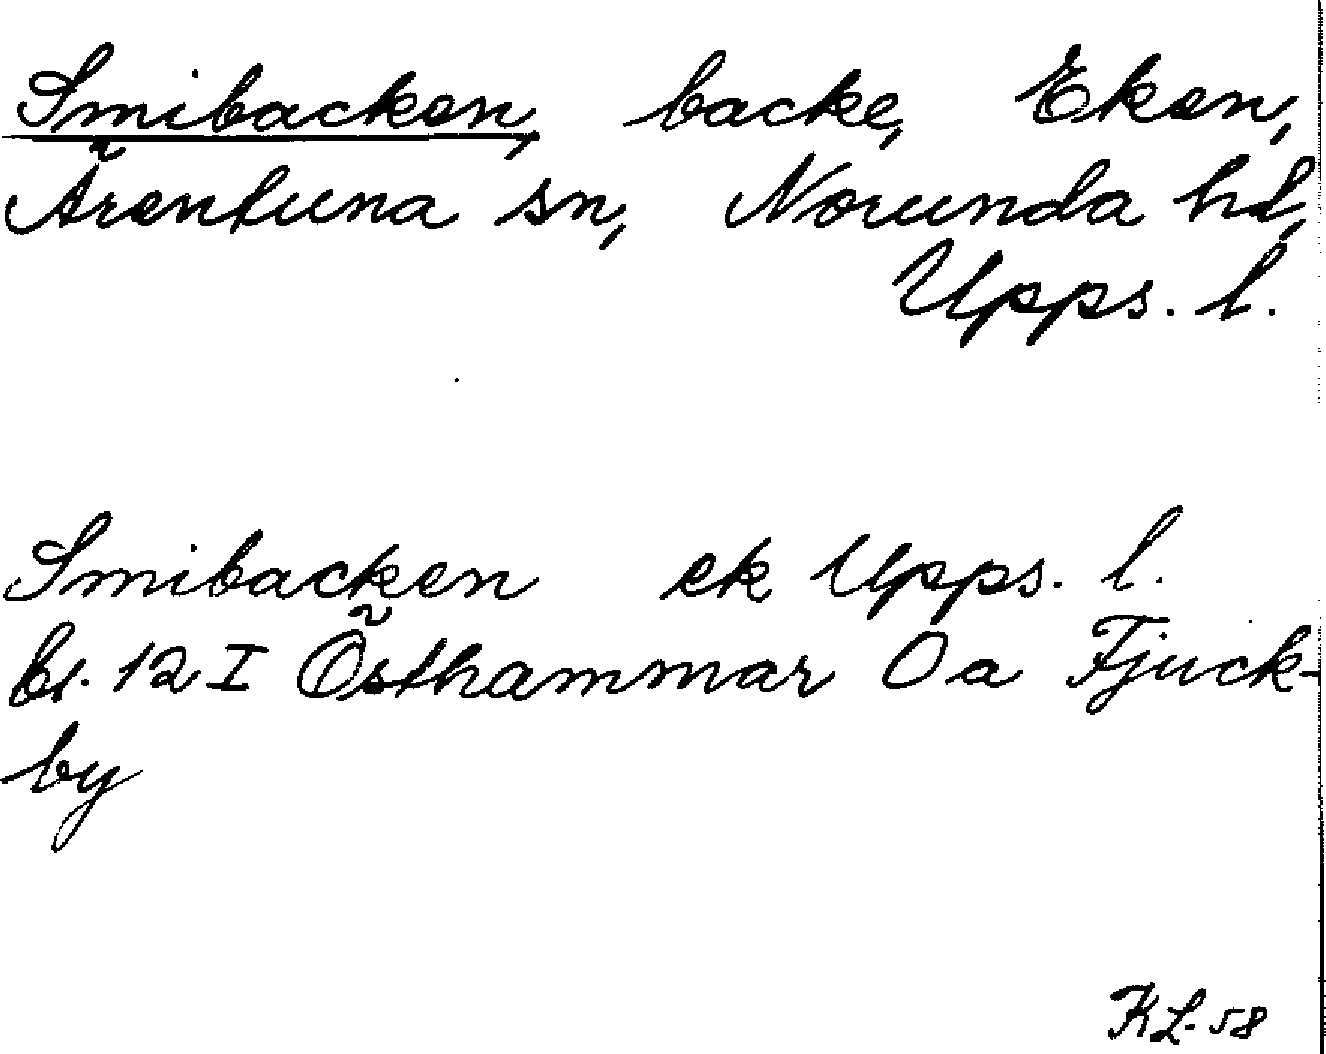 Smibacken, backe, Eken,
Ärentuna sn, Norunda hd,
Upps. l.
Smibacken ek Upps. l.
bl. 12 I Östhammar Oa Fjuck-
by
KL-58